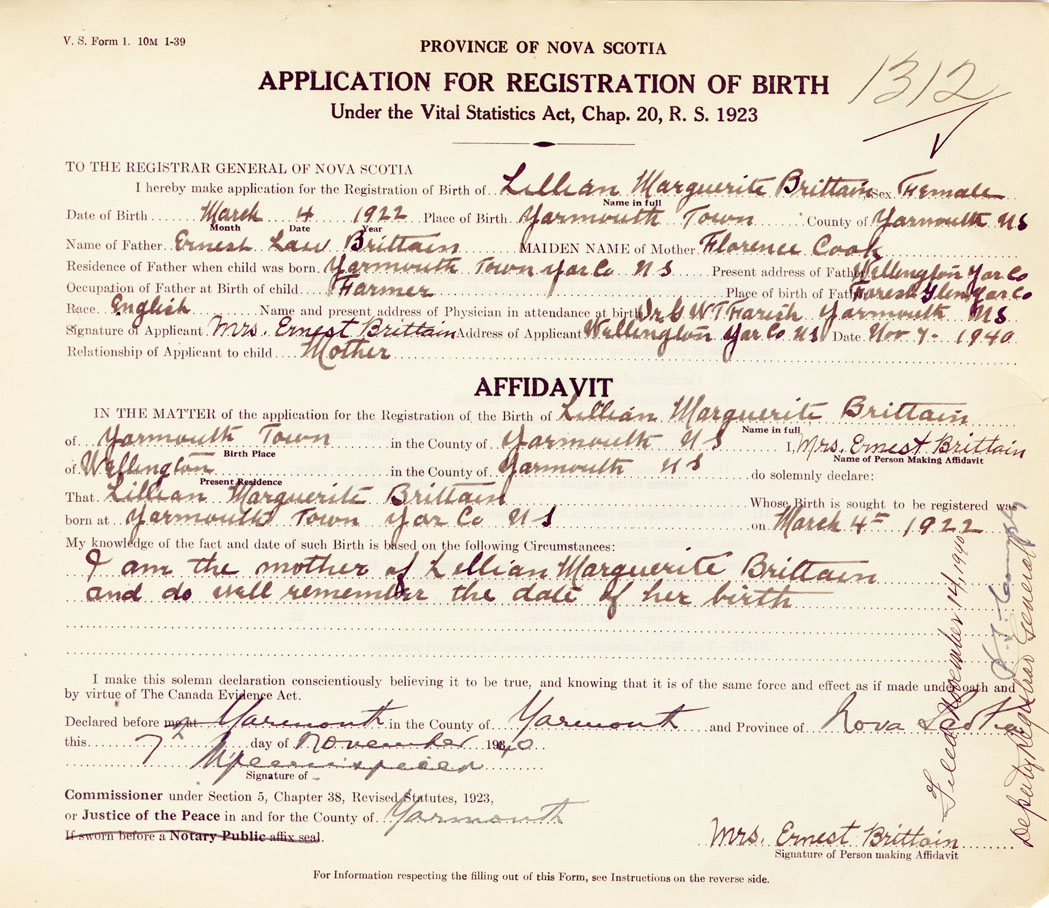 V. S. Form 1. 10M 1-39
PROVINCE OF NOVA SCOTIA
1312
APPLICATION FOR REGISTRATION OF BIRTH
Under the Vital Statistics Act, Chap. 20, R. S. 1923
TO THE REGISTRAR GENERAL OF NOVA SCOTIA
I hereby make application for the Registration of Birth of Lillian Marguerite Brittain Sex Female
Name in full
Date of Birth March 4 1922 Place of Birth Yarmouth Town County of Yarmouth NS
Month Date Year
Name of Father Ernest Law Brittain MAIDEN NAME of Mother Florence Cook
Residence of Father when child was born. Yarmouth Town Yar Co NS Present address of Father Wellington Yar Co
Occupation of Father at Birth of child Farmer Place of birth of Father Forest Glen Yar Co
Race English Name and present address of Physician in attendance at birth Dr G W T Farish Yarmouth NS
Signature of Applicant Mrs. Ernest Brittain Address of Applicant Wellington Yar Co NS Date Nov 7- 1940
Relationship of Applicant to child Mother
AFFIDAVIT
IN THE MATTER of the application for the Registration of the Birth of Lillian Marguerite Brittain
Name in full
of Yarmouth Town in the County of Yarmouth NS I, Mrs. Ernest Brittain
Birth Place Name of Person Making Affidavit
of Wellington in the County of Yarmouth NS do solemnly declare:
Present Residence
That Lillian Marguerite Brittain Whose Birth is sought to be registered was
born at Yarmouth Town Yar Co NS on March 4th 1922
My knowledge of the fact and date of such Birth is based on the following Circumstances:
I am the mother of Lillian Marguerite Brittain
and do well remember the date of her birth
I make this solemn declaration conscientiously believing it to be true, and knowing that it is of the same force and effect as if made under oath and
by virtue of The Canada Evidence Act.
Declared before me at Yarmouth in the County of Yarmouth and Province of Nova Scotia
this 7th day of November 1940
Signature of
Commissioner under Section 5, Chapter 38, Revised Statutes, 1923,
or Justice of the Peace in and for the County of Yarmouth
If sworn before a Notary Public affix seal.
Mrs. Ernest Brittain
Signature of Person making Affidavit
For Information respecting the filling out of this Form, see Instructions on the reverse side.
Filed November 14, 1940
Deputy Registrar General